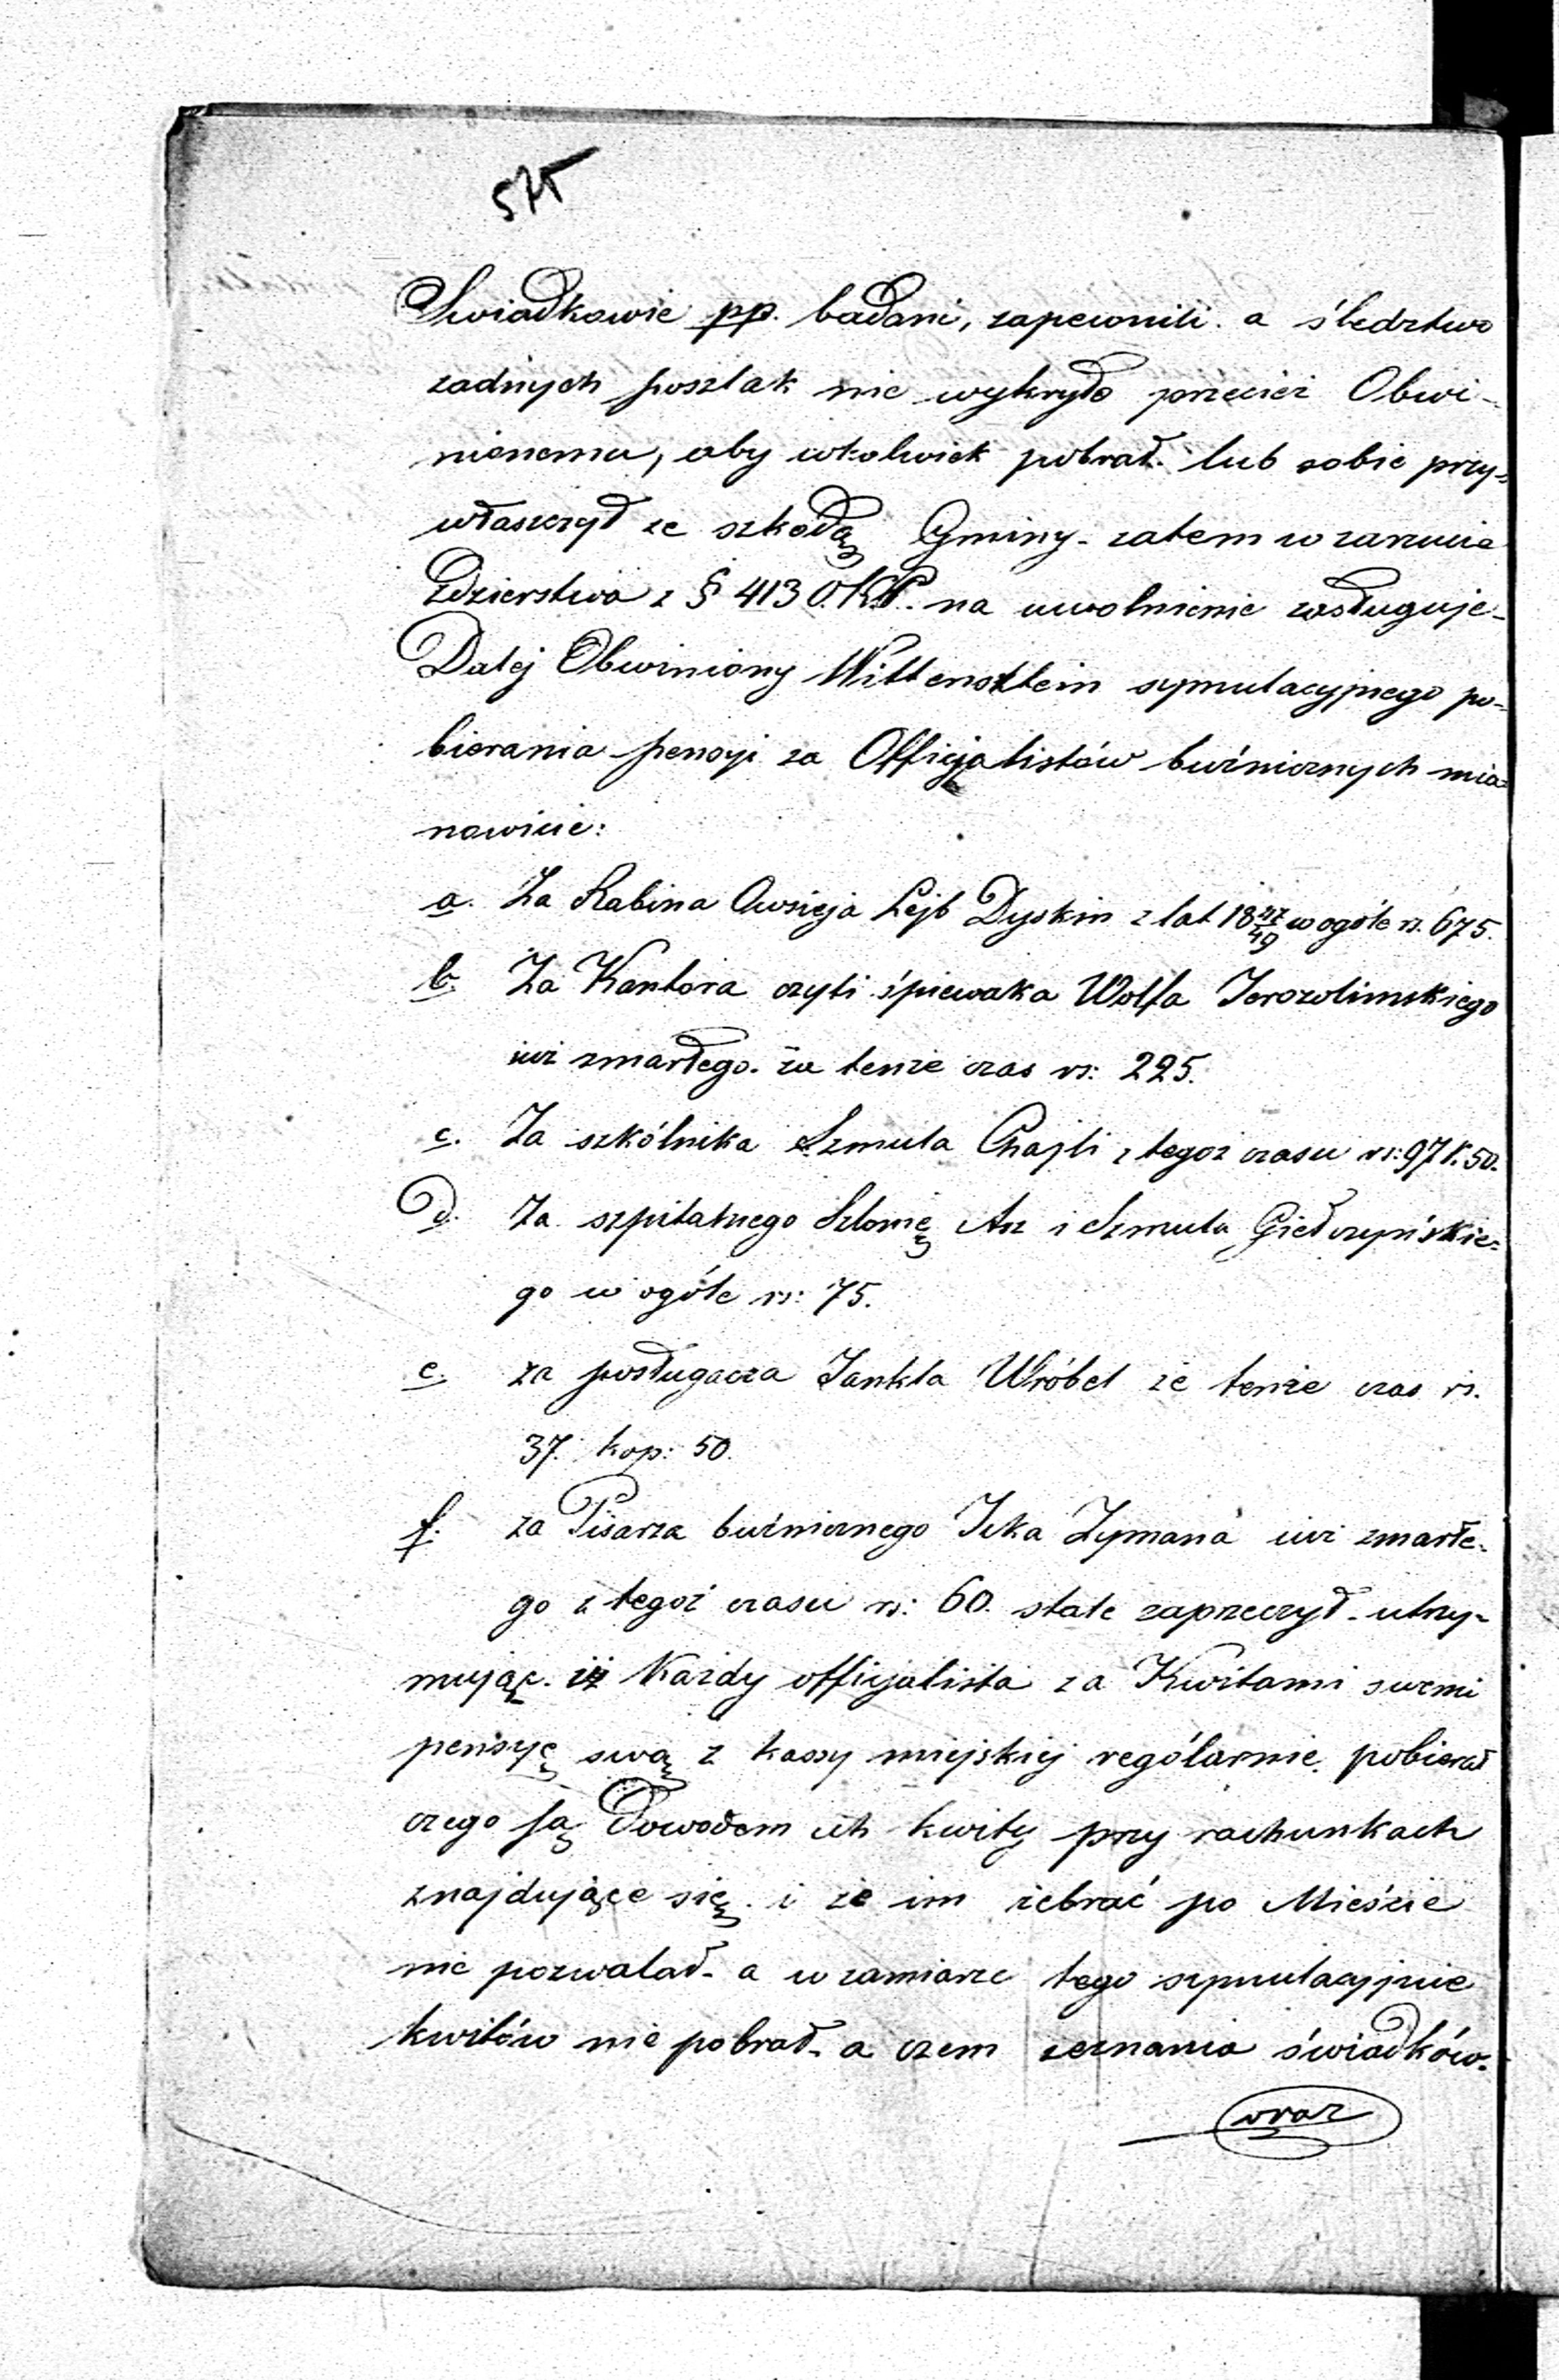 575
Swiadkowie pp. badani, zapewnili. a śledztwo
zadnych poszlak nie wykryło przeciez Obwi-
nionemu, aby cokolwiek pobrał. lub sobie przy-
właszczył ze szkodą Gminy- zatem w zarzucie
Zdzierstwa z § 413 O.K.P. na uwolnienie zasługuje-
Dalej Obwiniony Wittensztein symulacyjnego po-
bierania pensyi za Officyalistów buźnicznych mia-
nowicie:
a. Za Rabina Owsieja Lejb Dyskin z lat 18 47/49 w ogóle rs. 675.
b. Za Kantora czyli śpiewaka Wolfa Jerozolimskiego
iuż zmarłego. za tenże czas rs: 225.
c. Za szkólnika Szmula Chajli z tegoż czasu rs: 97 k. 50.
d. Za szpitalnego Szlomę As i Szmula Giełczyńskie-
go w ogóle rs: 75.
e. za posługacza Jankla Wróbel ze tenże czas rs.
37. kop: 50.
f. za Pisarza buźnicznego Icka Zymana iuż zmarłe-
go z tegoż czasu rs: 60. stale zaprzeczył- utrzy-
mując. iż Każdy officyalista za Kwitami swemi
pensyę swą z kassy miejskiej rególarnie. pobierał
czego są dowodem ich kwity przy rachunkach
znajdujące się. i że im żebrać po Mieście
nie pozwalał- a w zamiarze tego symulacyjnie
kwitów nie pobrał- a czem zeznania świadków-
oraz